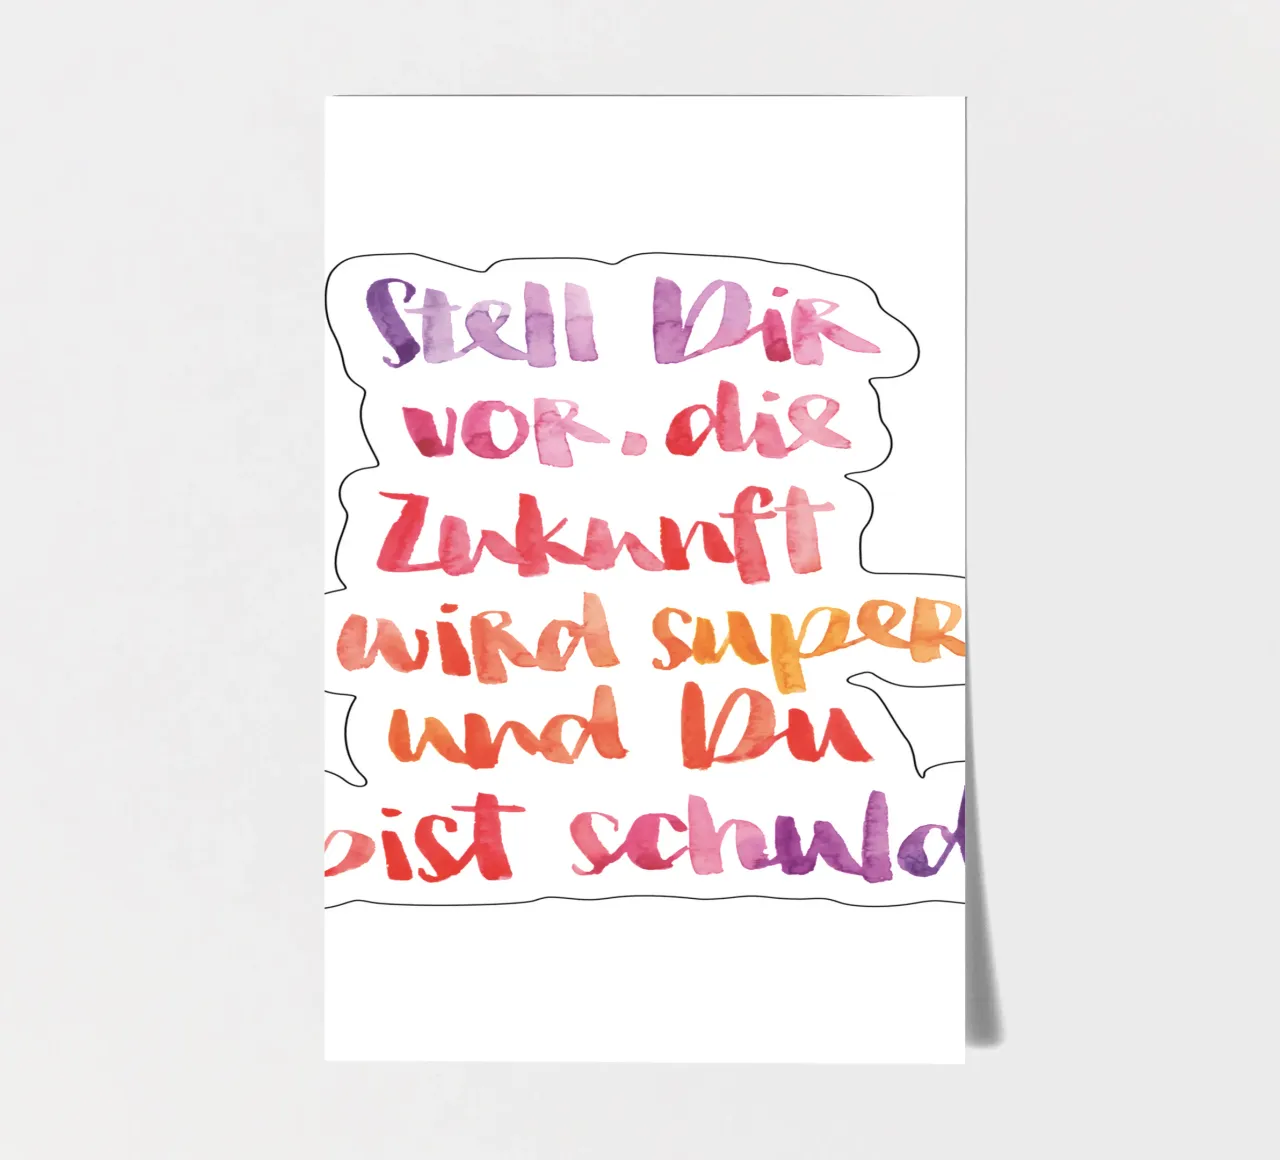 Stell Dir
vor, die
Zukunft
wird super
und Du
bist schuld